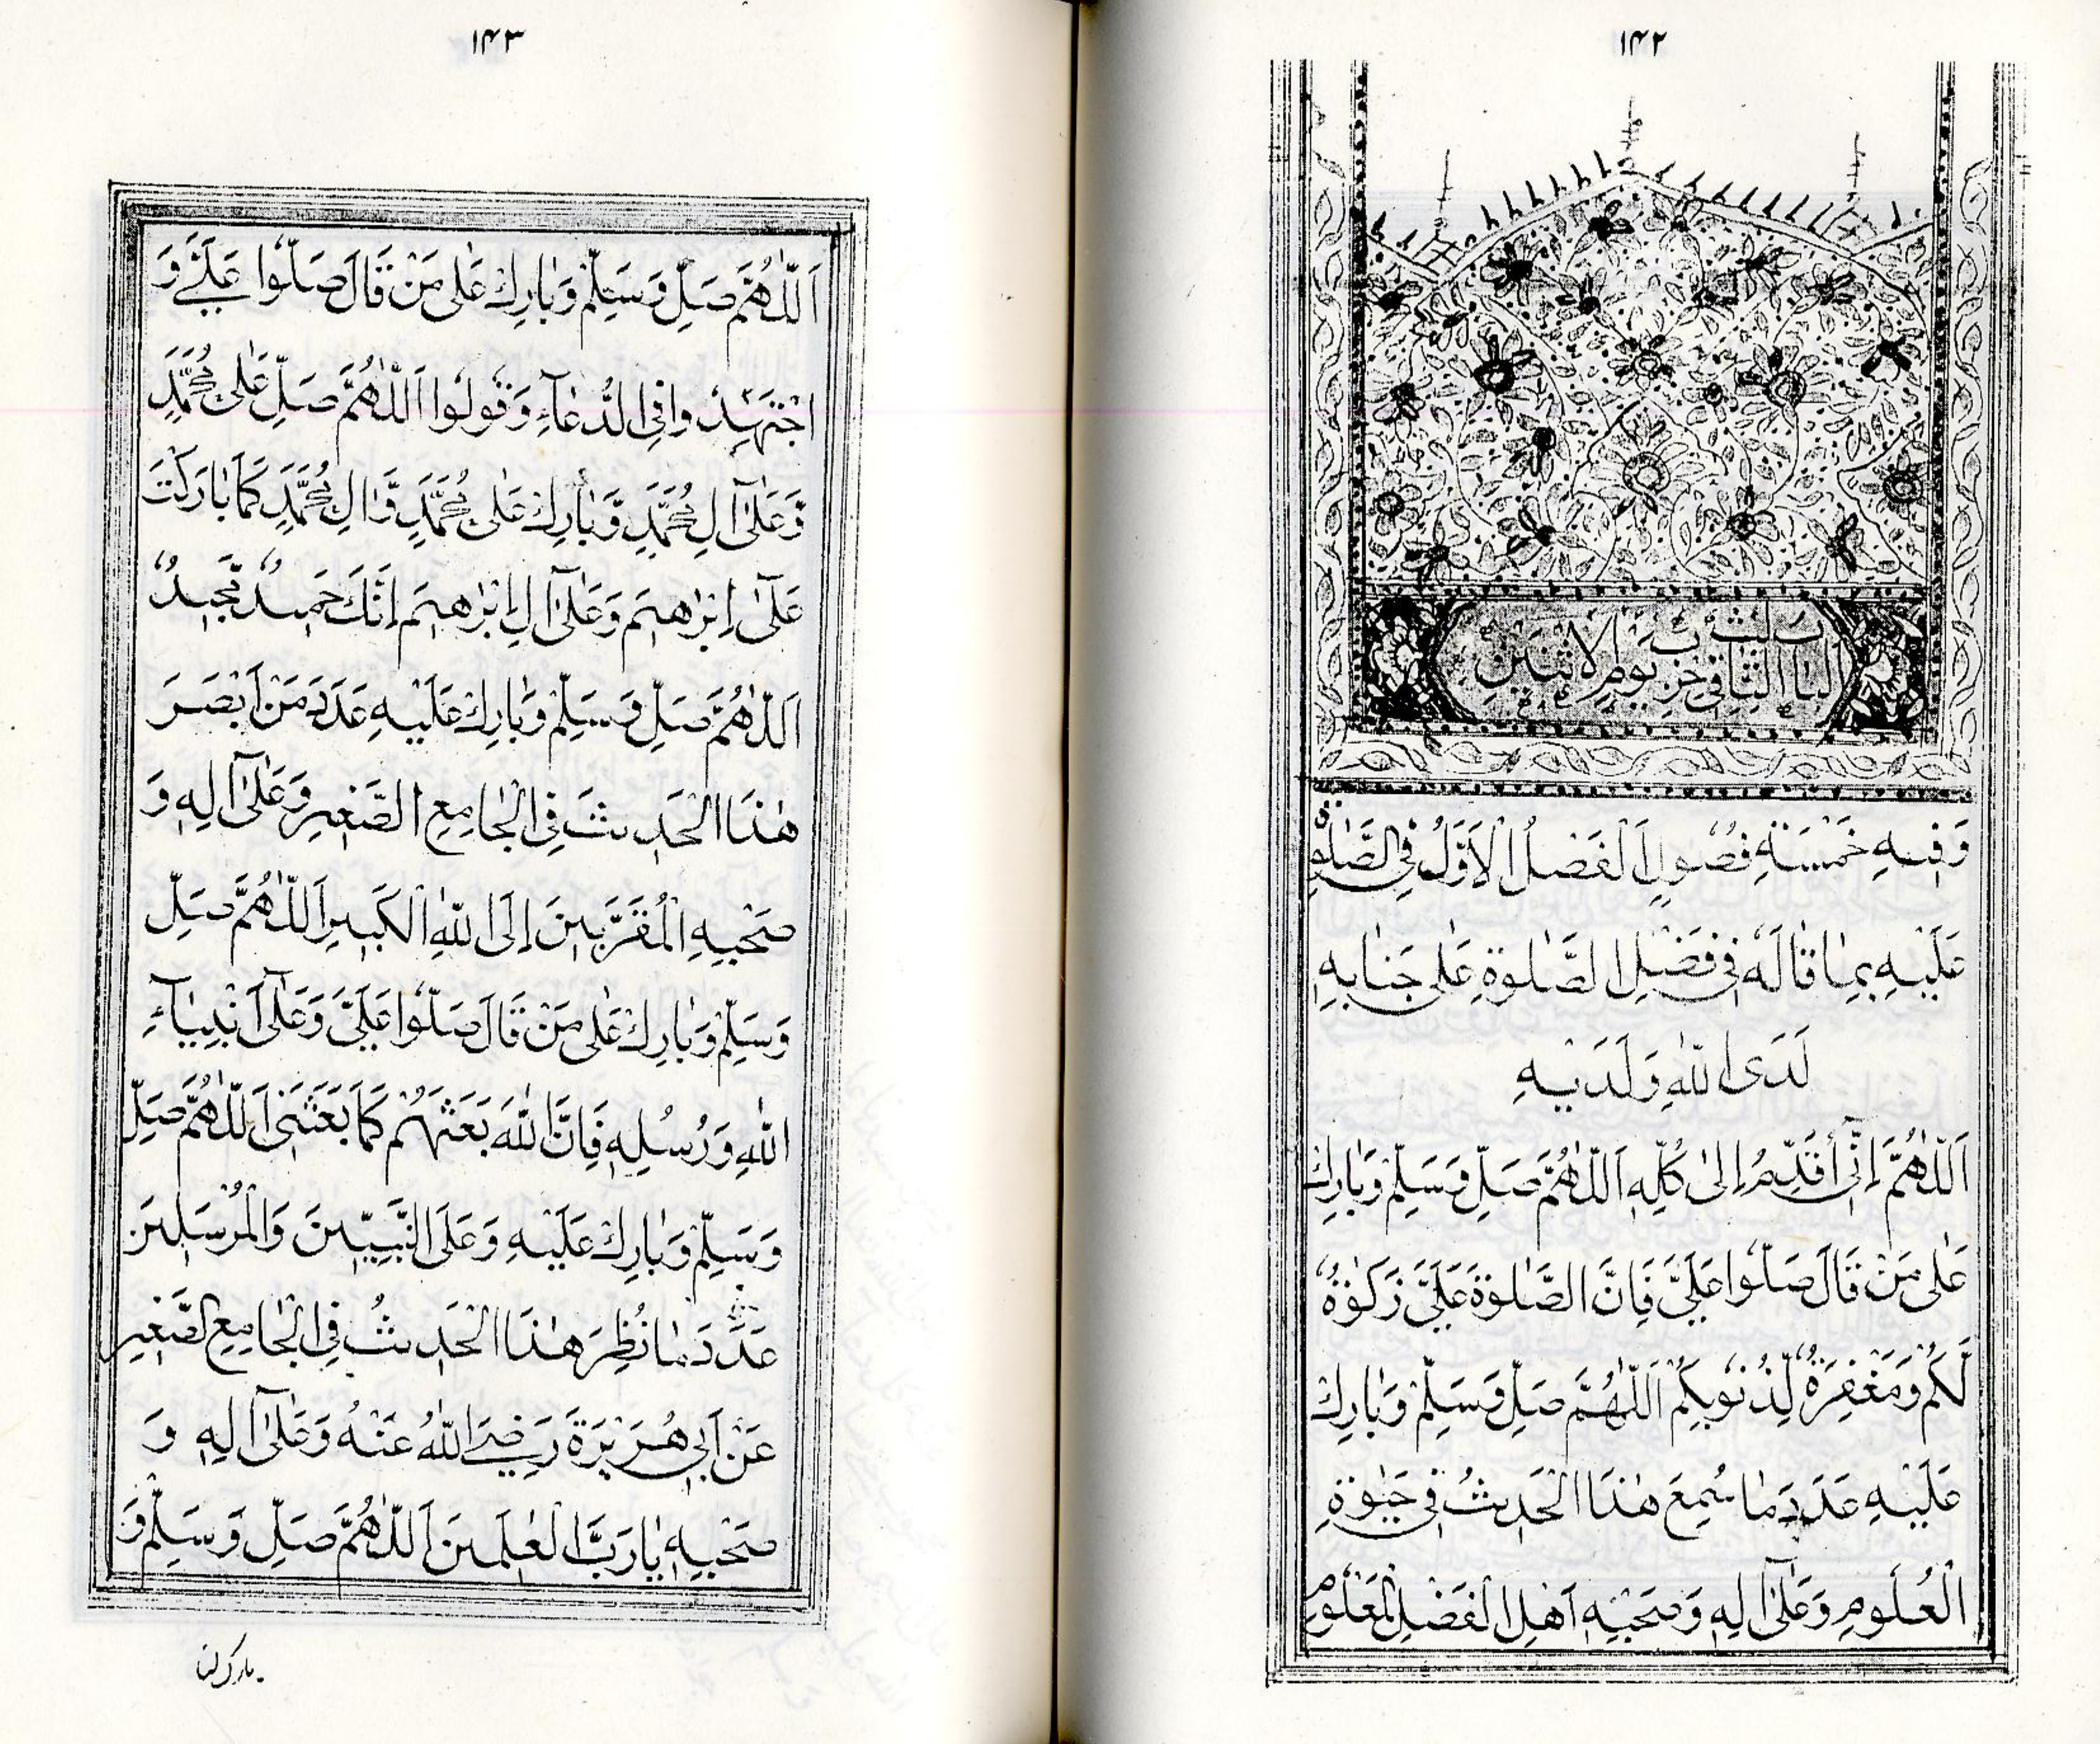 ۱۴۲
اَلْبَابُ الثَّانِي حِزْبُ يَوْمِ الْاِثْنَيْنِ
وَفِيهِ خَمْسَةِ فُصُولٍ اَلْفَضلُ الْاَوَّلُ فِي الصَّلٰوةِ
عَلَيْهِ بِمٰا قٰالَهُ فِي فَضْلِ الصَّلٰوةِ عَلٰى جَنٰابِهِ
لَدَى اللّٰهِ وَلَدَيْهِ
اَللّٰهُمَّ اِنِّي اُقَدِّمُ اِلٰى كُلِّهِ اَللّٰهُمَّ صَلِّ وَسَلِّمْ وَبٰارِكْ
عَلٰى مَنْ قٰالَ صَلُّوا عَلَيَّ فَاِنَّ الصَّلٰوةَ عَلَيَّ زَكٰوةٌ
لَّكُمْ وَمَغْفِرَةٌ لِّذُنُوبِكُمْ اَللّٰهُمَّ صَلِّ وَسَلِّمْ وَبٰارِكْ
عَلَيْهِ عَدَدَ مٰا سُمِعَ هٰذَا الْحَدِيثُ فِي حَيٰوةِ
الْعُلُومِ وَعَلٰى آلِهِ وَصَحْبِهِ اَهْلِ الْفَضْلِ الْمَعْلُومِ
۱۴۳
اَللّٰهُمَّ صَلِّ وَسَلِّمْ وَبٰارِكْ عَلٰى مَنْ قَالَ صَلُّوا عَلَيَّ وَ
اجْتَهِدُوا فِي الدُّعٰآءِ وَقُولُوا اَللّٰهُمَّ صَلِّ عَلٰى مُحَمَّدٍ
وَّعَلٰى آلِ مُحَمَّدٍ وَّبٰارِكْ عَلٰى مُحَمَّدٍ وَّاٰلِ مُحَمَّدٍ كَمٰا بٰارَكْتَ
عَلٰى اِبْرٰاهِيمَ وَعَلٰى آلِ اِبْرٰاهِيمَ اِنَّكَ حَمِيدٌ مَّجِيدٌ
اَللّٰهُمَّ صَلِّ وَسَلِّمْ وَبٰارِكْ عَلَيْهِ عَدَدَ مَنْ اَبْصَرَ
هٰذَا الْحَدِيثَ فِي الْجٰامِعِ الصَّغِيرِ وَعَلٰى آلِهِ وَ
صَحْبِهِ الْمُقَرَّبِينَ اِلَى اللّٰهِ الْكَبِيرِ اَللّٰهُمَّ صَلِّ
وَسَلِّمْ وَبٰارِكْ عَلٰى مَنْ قَالَ صَلُّوا عَلَيَّ وَعَلٰى اَنْبِيٰآءِ
اللّٰهِ وَرُسُلِهِ فَاِنَّ اللّٰهَ بَعَثَهُمْ كَمٰا بَعَثَنِي اَللّٰهُمَّ صَلِّ
وَسَلِّمْ وَبٰارِكْ عَلَيْهِ وَعَلَى النَّبِيِّينَ وَالْمُرْسَلِينَ
عَدَدَ مٰا نُظِرَ هٰذَا الْحَدِيثُ فِي الْجٰامِعِ الصَّغِيرِ
عَنْ اَبِي هُرَيْرَةَ رَضِيَ اللّٰهُ عَنْهُ وَعَلٰى آلِهِ وَ
صَحْبِهِ يٰا رَبَّ الْعٰلَمِينَ اَللّٰهُمَّ صَلِّ وَسَلِّمْ وَ
بارك لنا